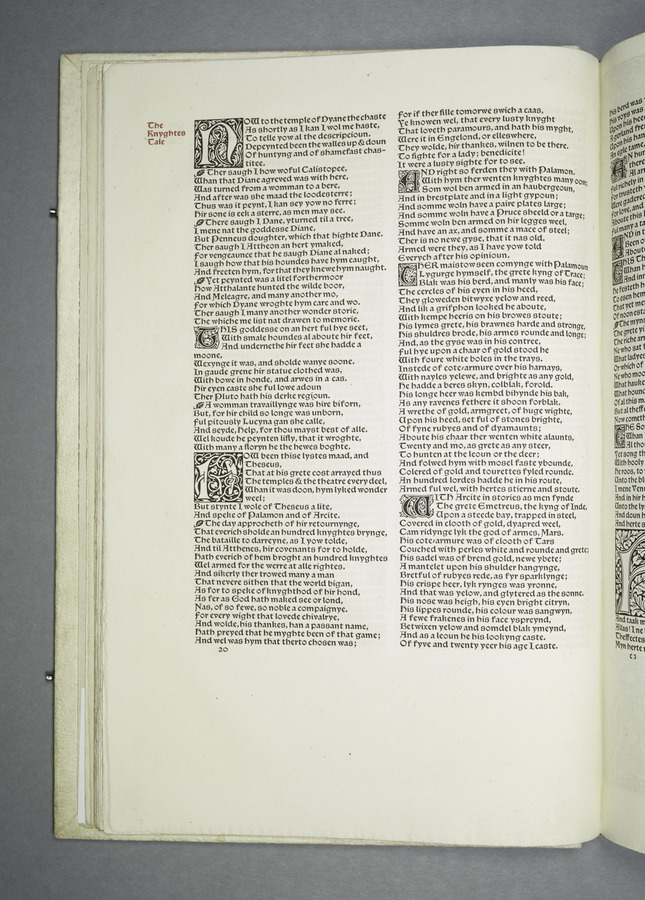 The
Knyghtes
Tale
NOW to the temple of Dyane the chaste
As shortly as I kan I wol me haste,
To telle yow al the descripcioun.
Depeynted been the walles up & doun
Of huntyng and of shamefast chas-
titee.
Ther saugh I how woful Calistopee,
Whan that Diane agreved was with here,
Was turned from a womman to a bere,
And after was she maad the loodesterre;
Thus was it peynt, I kan sey yow no ferre;
Hir sone is eek a sterre, as men may see.
There saugh I Dane, yturned til a tree,
I mene nat the goddesse Diane,
But Penneus doughter, which that highte Dane.
Ther saugh I Attheon an hert ymaked,
For vengeaunce that he saugh Diane al naked;
I saugh how that his houndes have hym caught,
And freeten hym, for that they knewe hym naught.
Yet peynted was a litel forthermoor
How Atthalante hunted the wilde boor,
And Meleagre, and many another mo,
For which Dyane wroghte hym care and wo.
Ther saugh I many another wonder storie,
The whiche me list nat drawen to memorie.
THIS goddesse on an hert ful hye seet,
With smale houndes al aboute hir feet,
And undernethe hir feet she hadde a
moone,
Wexynge it was, and sholde wanye soone.
In gaude grene hir statue clothed was,
With bowe in honde, and arwes in a cas.
Hir eyen caste she ful lowe adoun
Ther Pluto hath his derke regioun.
A womman travaillynge was hire biforn,
But, for hir child so longe was unborn,
Ful pitously Lucyna gan she calle,
And seyde, Help, for thou mayst best of alle.
Wel koude he peynten lifly, that it wroghte,
With many a floryn he the hewes boghte.
NOW been thise lystes maad, and
Theseus,
That at his grete cost arrayed thus
The temples & the theatre every deel,
Whan it was doon, hym lyked wonder
weel;
But stynte I wole of Theseus a lite,
And speke of Palamon and of Arcite.
The day approcheth of hir retournynge,
That everich sholde an hundred knyghtes brynge,
The bataille to darreyne, as I yow tolde,
And til Atthenes, hir covenants for to holde,
Hath everich of hem broght an hundred knyghtes
Wel armed for the werre at alle rightes.
And sikerly ther trowed many a man
That nevere sithen that the world bigan,
As for to speke of knyghthod of hir hond,
As fer as God hath maked see or lond,
Nas, of so fewe, so noble a compaignye.
For every wight that lovede chivalrye,
And wolde, his thankes, han a passant name,
Hath preyed that he myghte been of that game;
And wel was hym that therto chosen was;
20
For if ther fille tomorwe swich a caas,
Ye knowen wel, that every lusty knyght
That loveth paramours, and hath his myght,
Were it in Engelond, or elleswhere,
They wolde, hir thankes, wilnen to be there.
To fighte for a lady; benedicite!
It were a lusty sighte for to see.
AND right so ferden they with Palamon.
With hym ther wenten knyghtes many oon;
Som wol ben armed in an haubergeoun,
And in brestplate and in a light gypoun;
And somme woln have a paire plates large;
And somme woln have a Pruce sheeld or a targe;
Somme woln ben armed on hir legges weel,
And have an ax, and somme a mace of steel;
Ther is no newe gyse, that it nas old.
Armed were they, as I have yow told
Everych after his opinioun.
THER maistow seen comynge with Palamoun
Lygurge hymself, the grete kyng of Trace;
Blak was his berd, and manly was his face;
The cercles of his eyen in his heed,
They gloweden bitwyxe yelow and reed,
And lik a griffphon looked he aboute,
With kempe heeris on his browes stoute;
His lymes grete, his brawnes harde and stronge,
His shuldres brode, his armes rounde and longe;
And, as the gyse was in his contree,
Ful hye upon a chaar of gold stood he
With foure white boles in the trays.
Instede of cote-armure over his harnays,
With nayles yelewe, and brighte as any gold,
He hadde a beres skyn, colblak, for old.
His longe heer was kembd bihynde his bak,
As any ravenes fethere it shoon forblak.
A wrethe of gold, armgreet, of huge wighte,
Upon his heed, set ful of stones brighte,
Of fyne rubyes and of dyamaunts;
Aboute his chaar ther wenten white alaunts,
Twenty and mo, as grete as any steer,
To hunten at the leoun or the deer;
And folwed hym with mosel faste ybounde,
Colered of gold and tourettes fyled rounde.
An hundred lordes hadde he in his route,
Armed ful wel, with hertes stierne and stoute.
WITH Arcite in stories as men fynde
The grete Emetreus, the kyng of Inde,
Upon a steede bay, trapped in steel,
Covered in clooth of gold, dyapred weel,
Cam ridynge lyk the god of armes, Mars.
His cote-armure was of clooth of Tars
Couched with perles white and rounde and grete;
His sadel was of brend gold, newe ybete;
A mantelet upon his shulder hangynge,
Bretful of rubyes rede, as fyr sparklynge;
His crispe heer, lyk rynges was yronne,
And that was yelow, and glytered as the sonne.
His nose was heigh, his eyen bright citryn,
His lippes rounde, his colour was sangwyn,
A fewe frakenes in his face yspreynd,
Betwixen yelow and somdel blak ymeynd,
And as a leoun he his lookyng caste.
Of fyve and twenty yeer his age I caste.